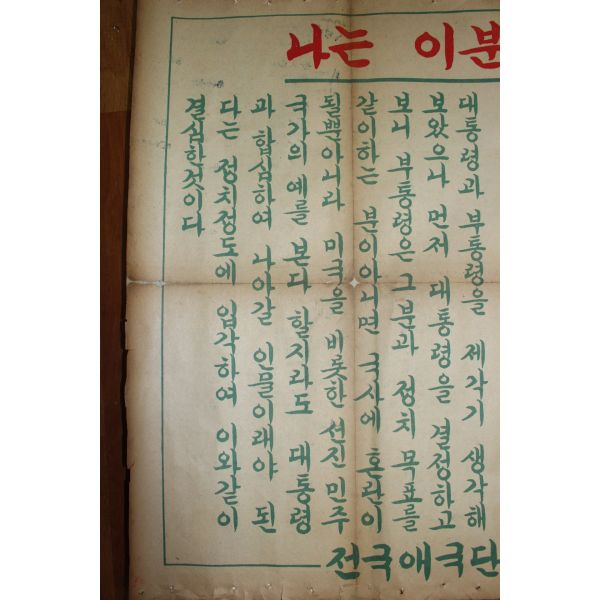 나는 이분
대통령과 부통령을 제각기 생각해
보았으나 먼저 대통령을 결정하고
보니 부통령은 그분과 정치 목표를
같이하는 분이아니면 국사에 혼란이
될뿐아니라 미국을 비롯한 선진 민주
국가의 예를 본다 할지라도 대통령
과 합심하여 나아갈 인물이래야 된
다는 정치정도에 입각하여 이와같이
결심한것이다
전국애국단